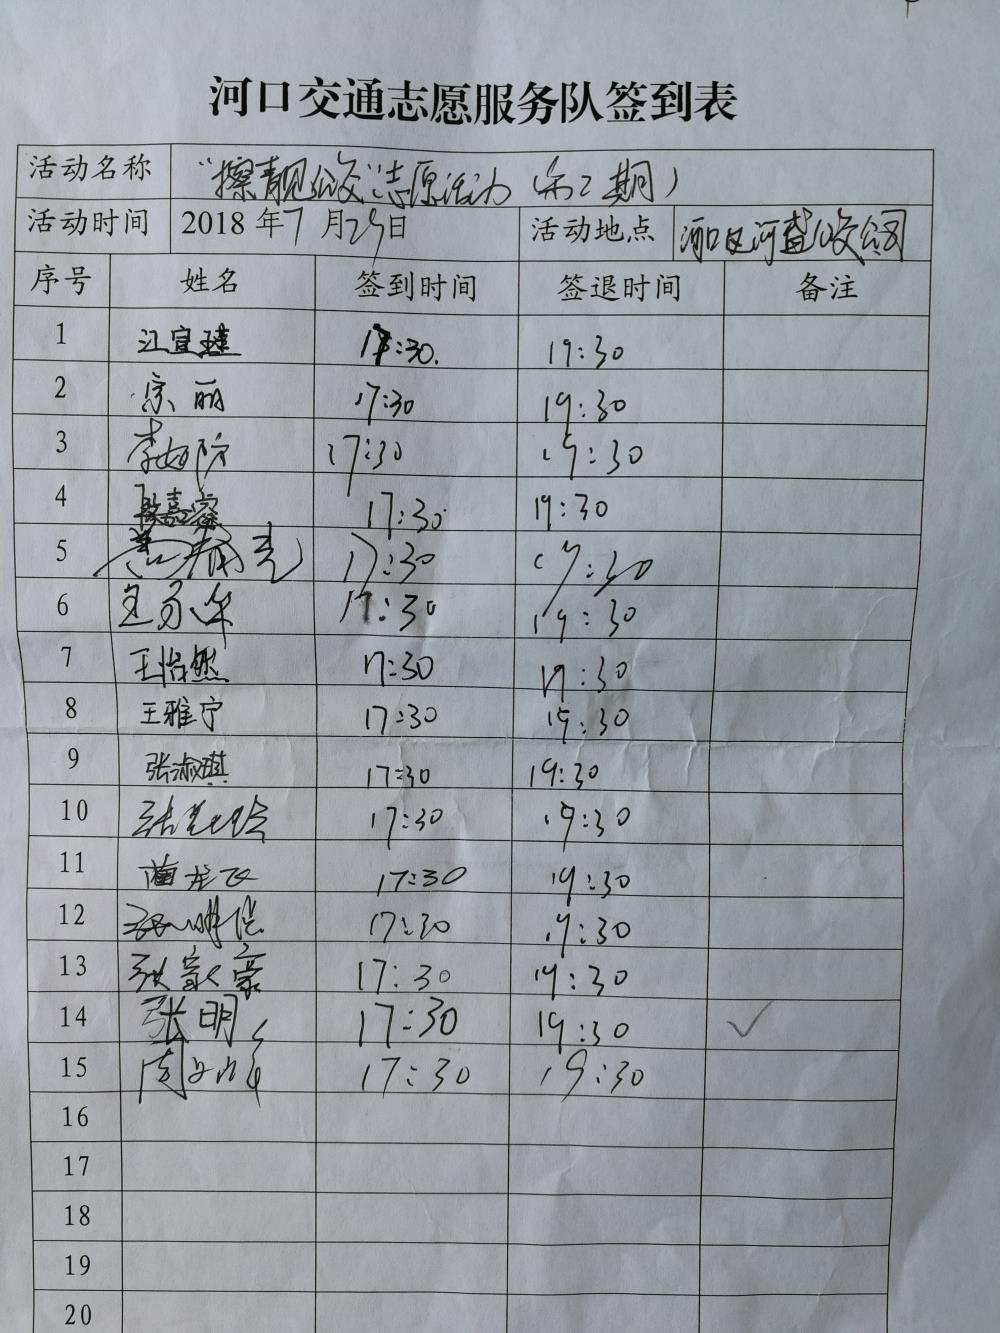 河口交通志愿服务队签到表
活动名称 "擦靓公交"志愿活动(第2期)
活动时间 2018年7月29日 活动地点 河口区河盛公交公司
序号 姓名 签到时间 签退时间 备注
1 江宜瑾 17:30. 19:30
2 宗丽 17:30 19:30
3 17:30 19:30
4 17:30 19:30
5 17:30 19:30
6 17:30 19:30
7 王怡然 17:30 19:30
8 王雅宁 17:30 19:30
9 张淑琪 17:30 19:30
10 17:30 19:30
11 17:30 19:30
12 17:30 19:30
13 张家豪 17:30 19:30
14 张明 17:30 19:30 ✓
15 17:30 19:30
16
17
18
19
20